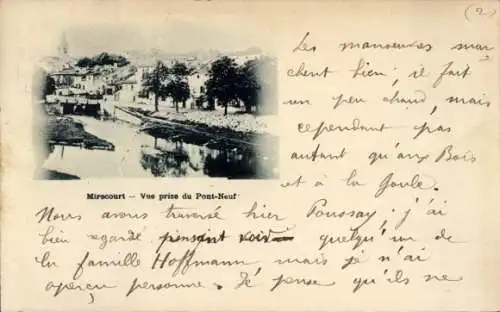 (2)
Les manoeuvres mar
chent bien; il fait
un peu chaud, mais
cependant pas
autant qu'aux Bois
et à la Goule.
Mirecourt — Vue prise du Pont-Neuf
Nous avons traversé hier Poussay; j'ai
bien regardé pensant voir quelqu'un de
la famille Hoffmann mais je n'ai
aperçu personne. Je pense qu'ils ne